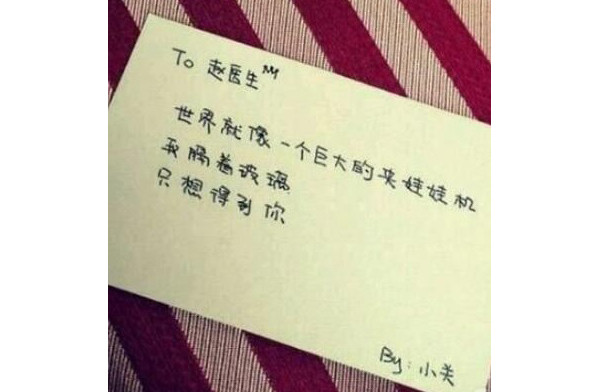 To 赵医生
世界就像一个巨大的夹娃娃机
我隔着玻璃
只想得到你
By:小关